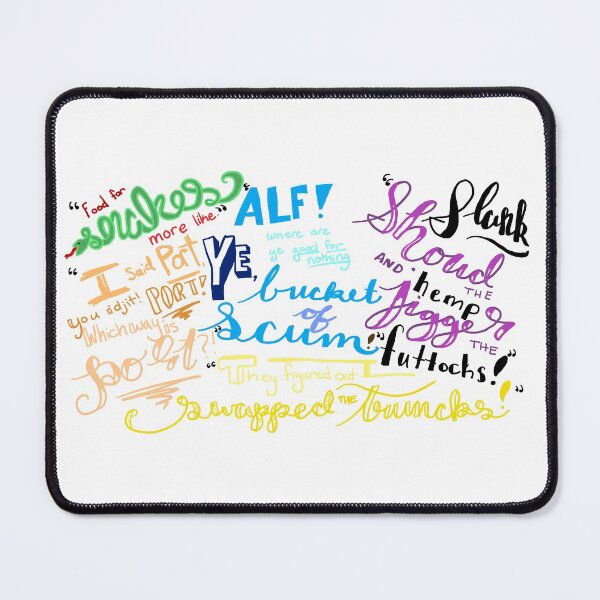 "Food for
snakes
more like"
"ALF!
where are
ye good for
nothing
YE,
bucket
of
scum!"
Slank
"Shoud
THE
hemp
AND
Jigger
THE
futtocks!"
"I said Port
you idjit! PORT!
Whichaway is
port?!"
"They figured out I
swapped THE trunks!"